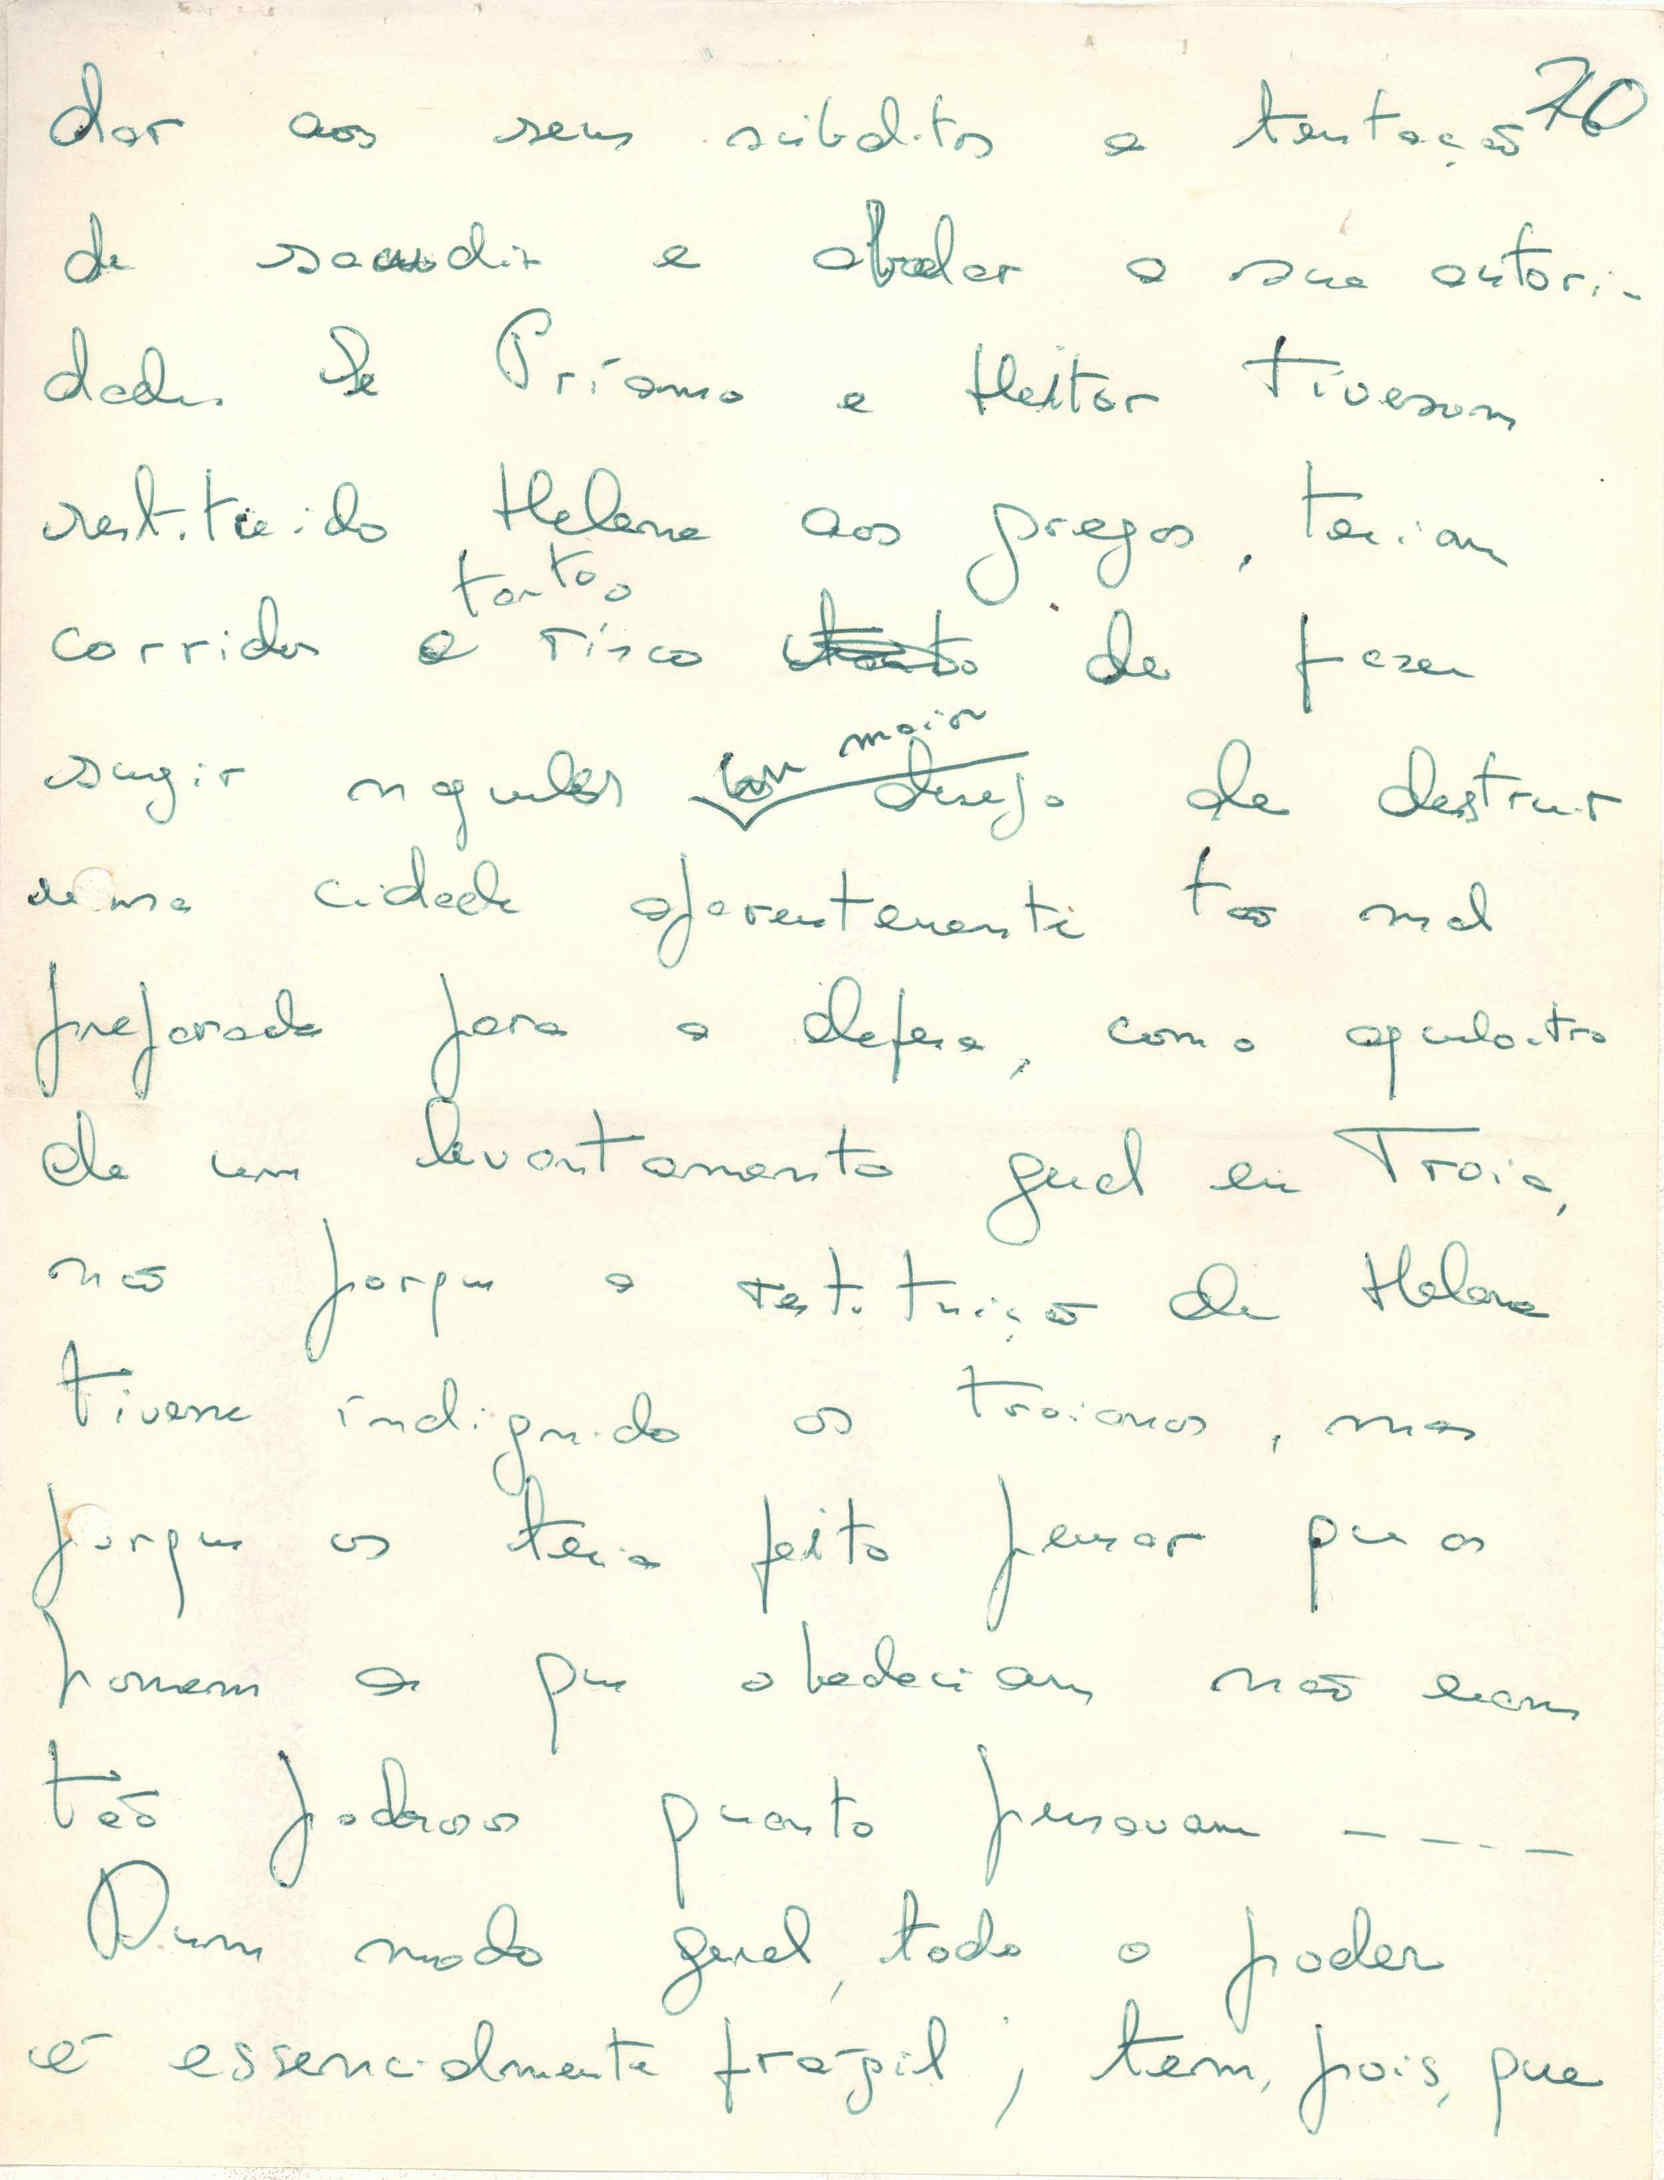 70
dar aos seus súbditos a tentação
de sacudir e abalar a sua autori-
dade. Se Príamo e Heitor tivessem
restituido Helena aos gregos, teriam
tanto o
corrido o risco tanto de fazer
surgir naqueles um maior desejo de destruir
uma cidade aparentemente tão mal
preparada para a defesa, como aqueloutro
de um levantamento geral em Troia,
não porque a restituição de Helena
tivesse indignado os troianos, mas
porque os teria feito pensar que os
homens a que obedeciam não eram
tão poderosos quanto pensavam ----
Dum modo geral, todo o poder
é essencialmente frágil; tem, pois, que